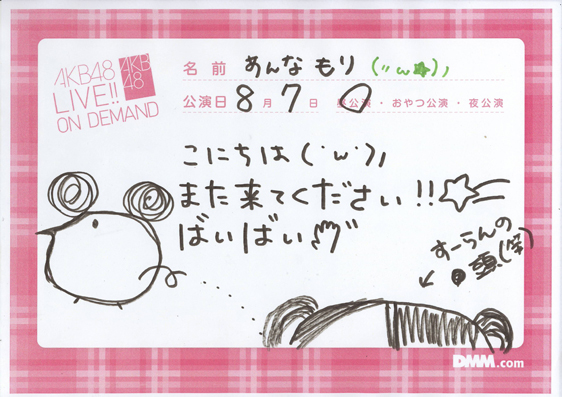 AKB48
LIVE!!
ON DEMAND
AKB
48
名前 あんな もり (ﾞωﾞ☆)ﾉ
公演日 8月 7日 昼公演・おやつ公演・夜公演
こにちは(˙ω˙)ﾉ
また来てください!!☆
ばいばい
すーらんの
頭(笑)
DMM.com